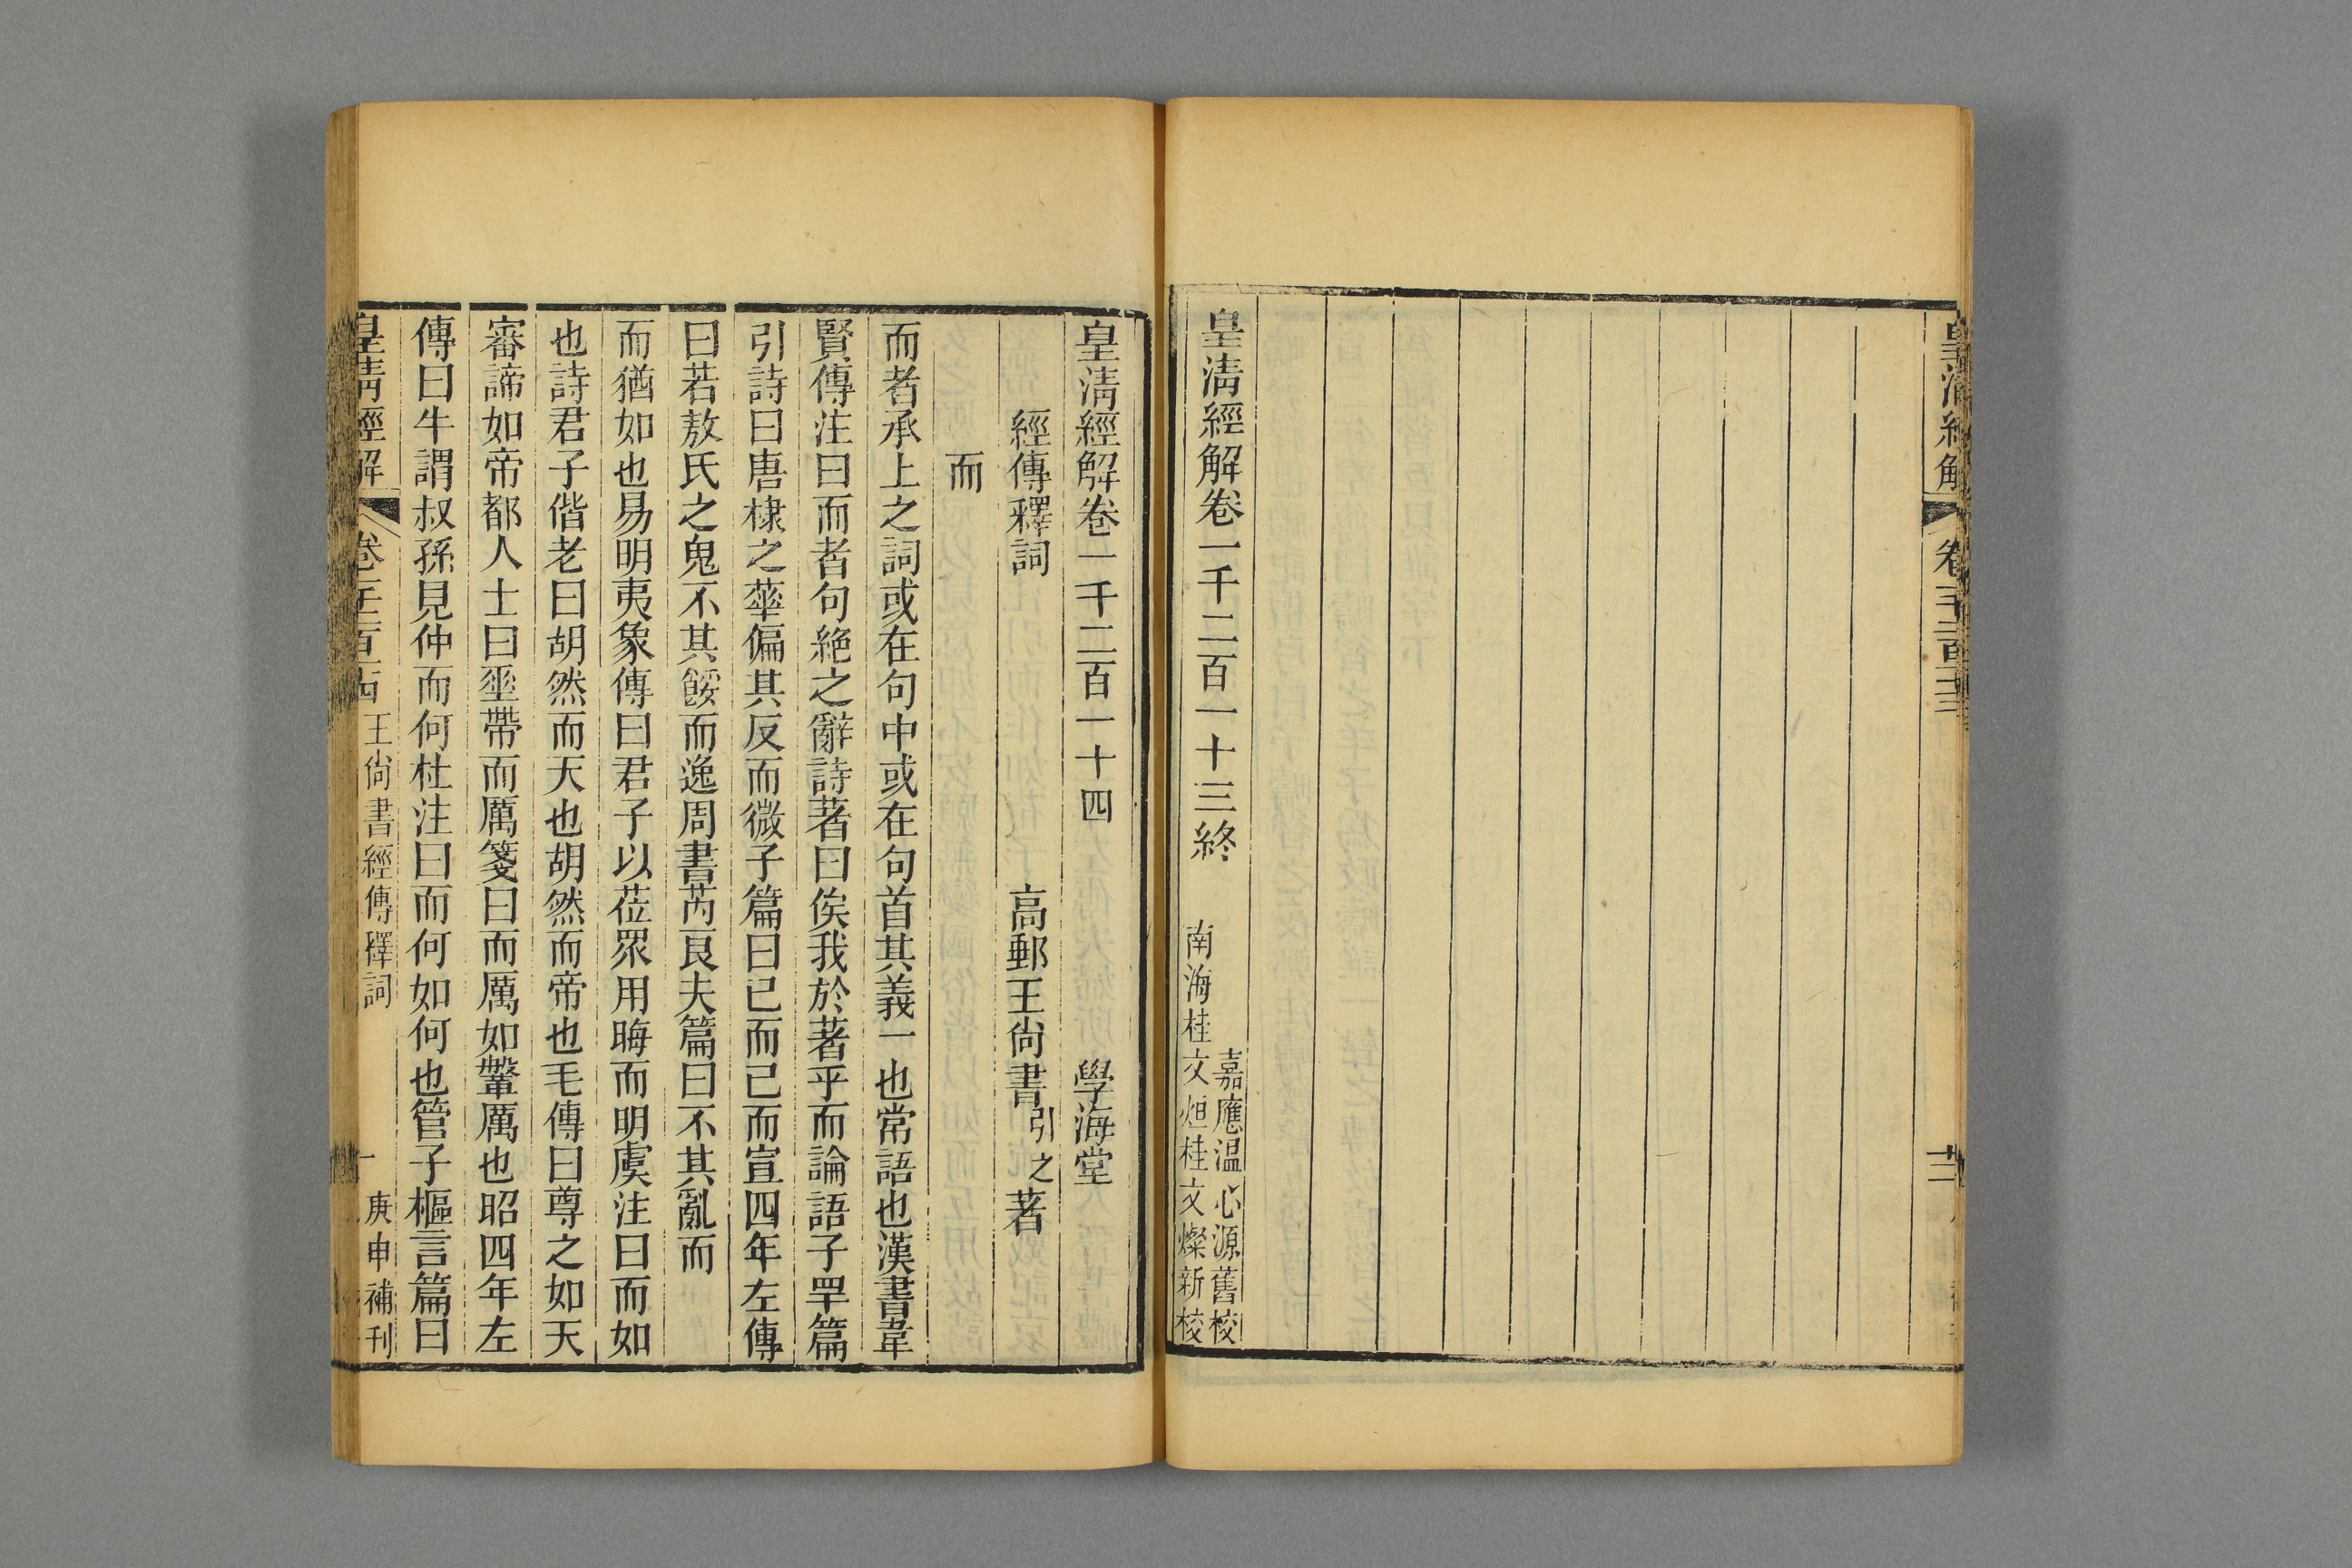 皇清經解
卷一千二百十三
皇淸經解卷一千二百一十三終
嘉應温心源舊校
南海桂文烜桂文燦新校
皇淸經解卷一千二百一十四
學海堂
經傳釋詞
高郵王尙書引之著
而
而者承上之詞或在句中或在句首其義一也常語也漢書韋
賢傳注曰而者句絶之辭詩著曰俟我於著乎而論語子罕篇
引詩曰唐棣之華偏其反而微子篇曰已而已而宣四年左傳
曰若敖氏之鬼不其餒而逸周書芮良夫篇曰不其亂而
而猶如也易明夷象傳曰君子以莅眾用晦而明虞注曰而如
也詩君子偕老曰胡然而天也胡然而帝也毛傳曰尊之如天
審諦如帝都人士曰垂帶而厲箋曰而厲如鞶厲也昭四年左
傳曰牛謂叔孫見仲而何杜注曰而何如何也管子樞言篇曰
皇清經解
卷一千二百十四
王尙書經傳釋詞
一
庚申補刊